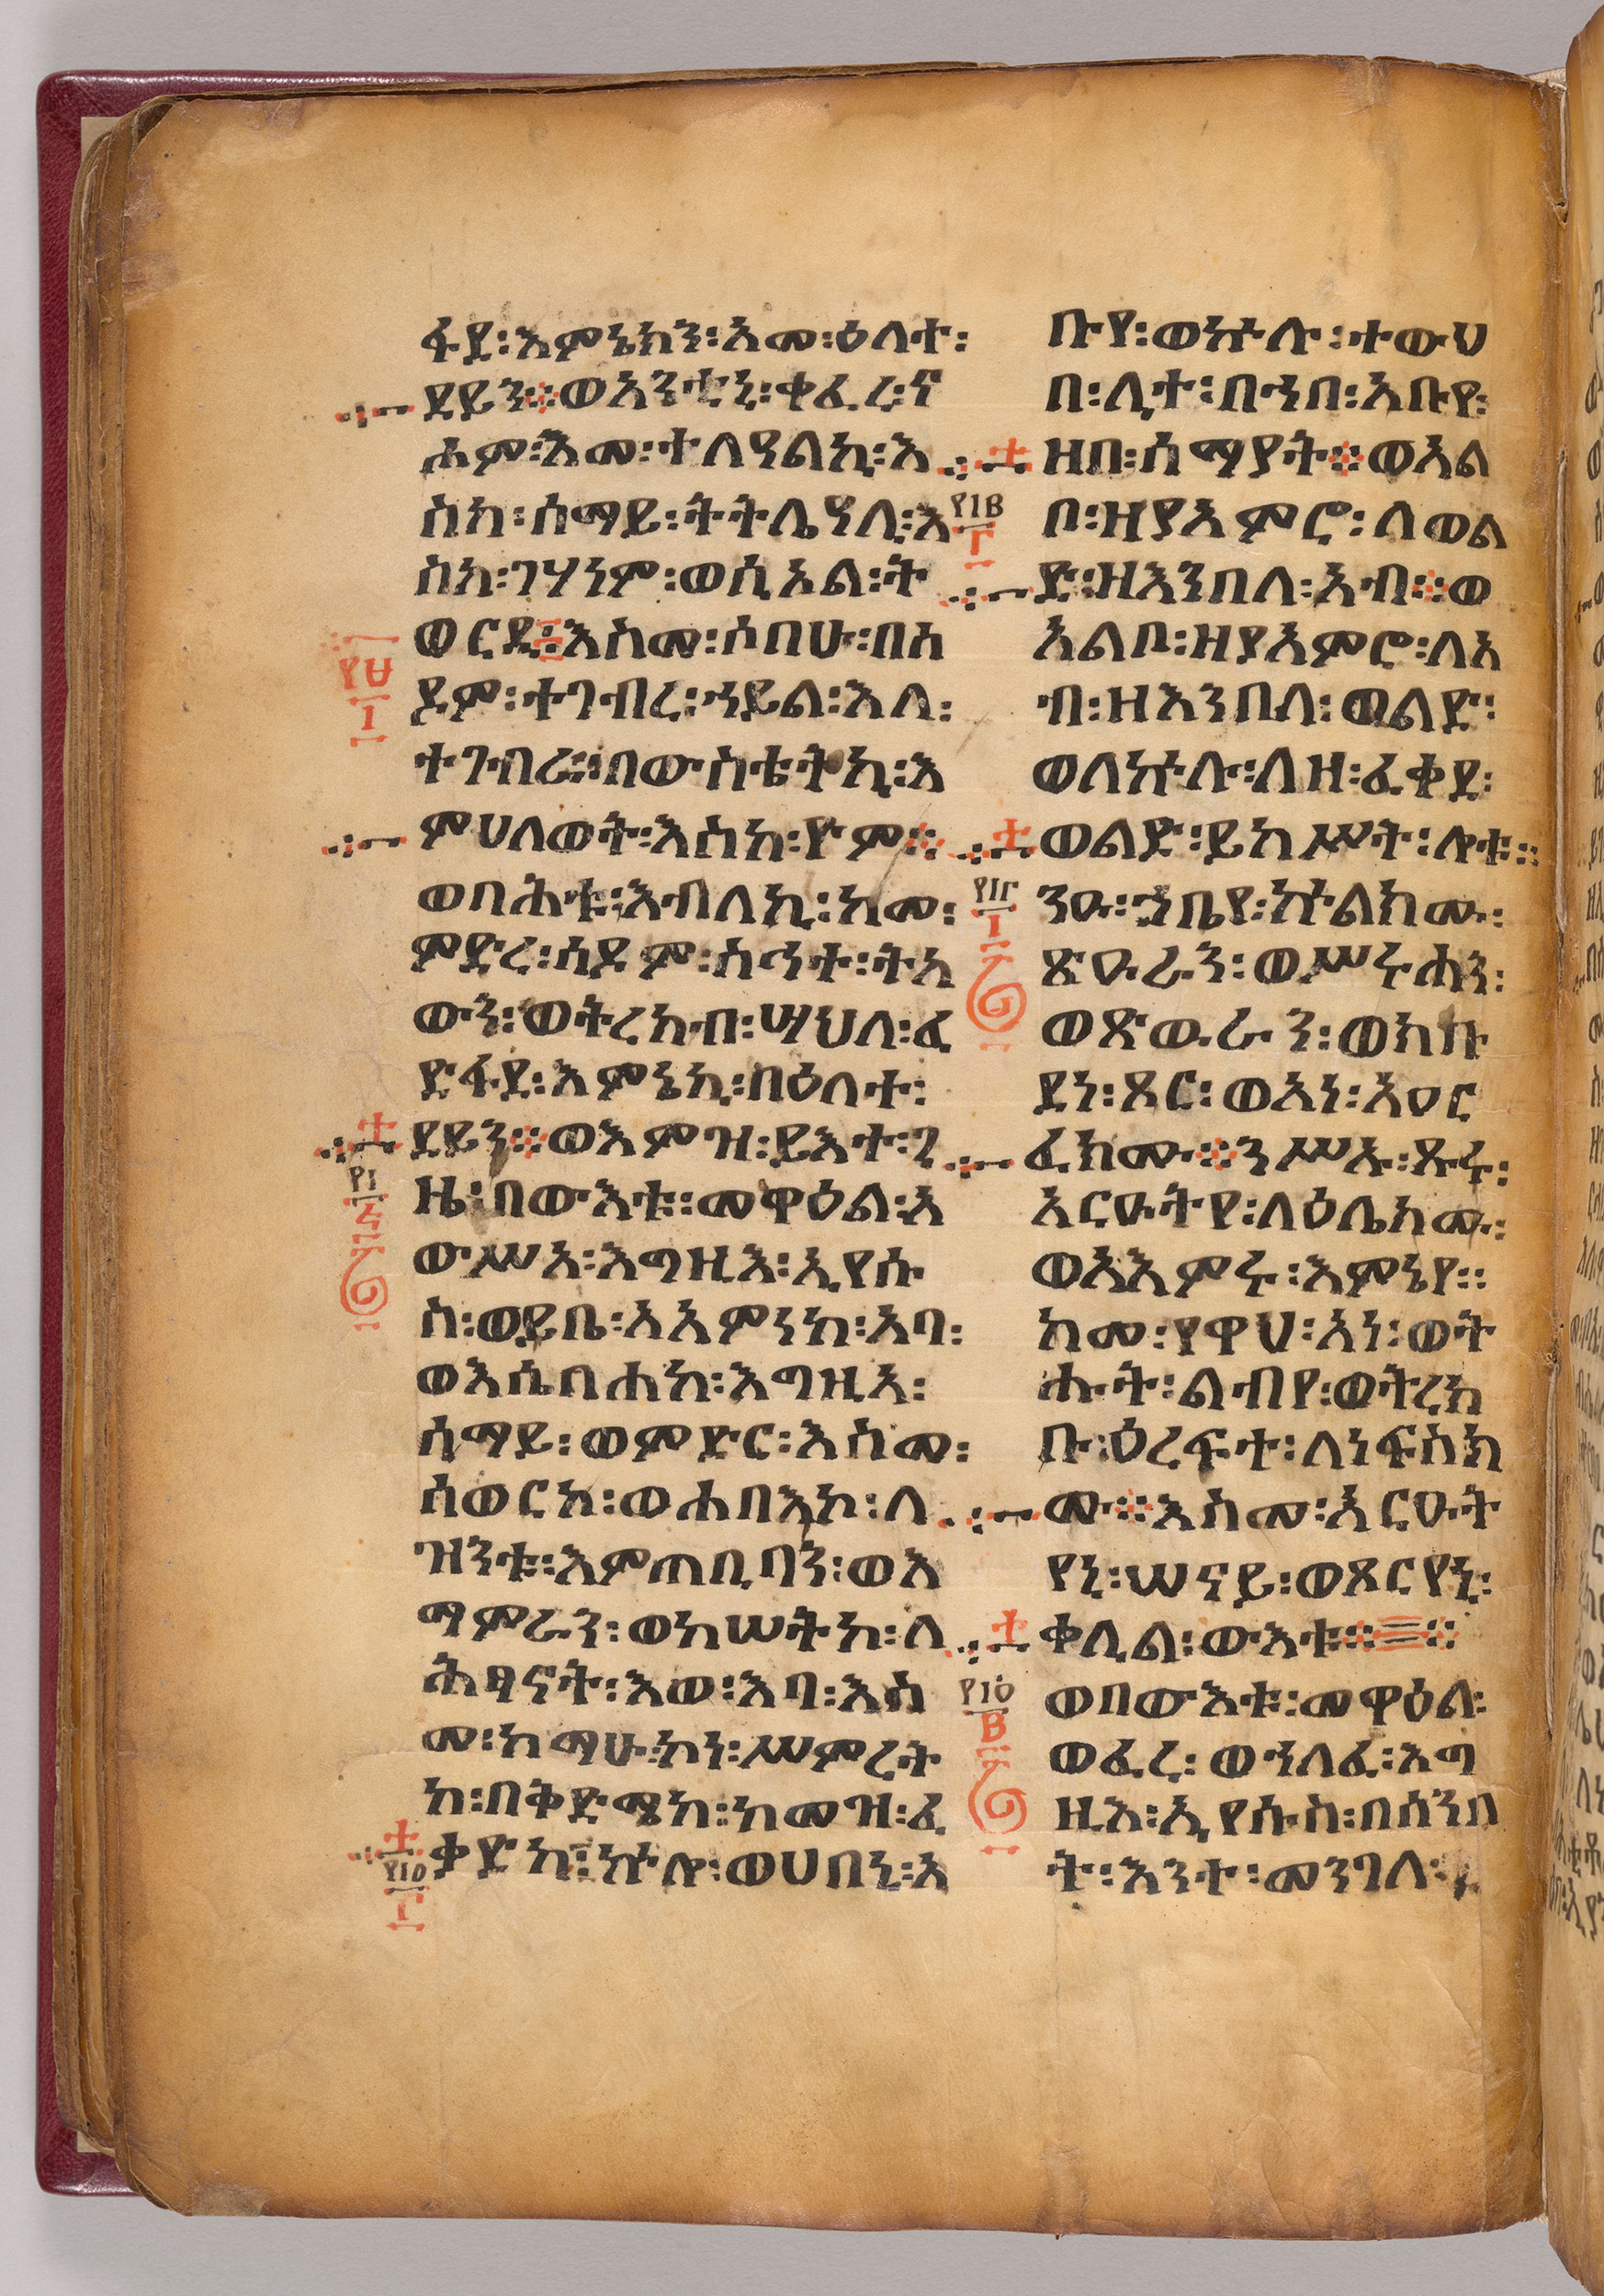 ፋደ፡እምኔክን፡አመ፡ዕለተ፡
ደይን፨ወአንቲኒ፡ቀፈረ፡ና
ሖም፡እመ፡ተለዓልኪ፡እ
ስከ፡ሰማይ፡ትትሌዓሊ፡እ
ስከ፡ገሃነም፡ወሲኦል፡ት
ወርዲ፨እስመ፡ሶበሁ፡በሰ
ዶም፡ተገብረ፡ኀይል፡እለ፡
ተገብረ፡በውስቴትኪ፡እ
ምሀለወት፡እስከ፡ዮም፨
ወባሕቱ፡እብለኪ፡ከመ፡
ምድረ፡ሰዶም፡ስኅተ፡ትከ
ውን፡ወትረክብ፡ሣህለ፡ፈ
ድፋደ፡እምኔኪ፡በዕለተ፡
ደይን፨ወእምዝ፡ይእተ፡ጊ
ዜ፡በውእቱ፡መዋዕል፡አ
ውሥአ፡እግዚእ፡ኢየሱ
ስ፡ወይቤ፡አአምነከ፡አባ፡
ወእሴብሐከ፡እግዚኦ፡
ሰማይ፡ወምድር፡እስመ፡
ሰወርከ፡ወሐባእኮ፡ለ
ዝንቱ፡እምጠቢባን፡ወእ
ማምራን፡ወከሠትከ፡ለ
ሕፃናት፡እወ፡አባ፡እስ
መ፡ከማሁ፡ኮነ፡ሥምረት
ከ፡በቅድሜከ፡ከመዝ፡ፈ
ቀድከ፡ኵሎ፡ወሀበኒ፡አ
፱፰
፲
፻፲
፭
፻፲፩
፫
ቡየ፡ወኵሉ፡ተውህ
በ፡ሊተ፡በኀበ፡አቡየ፡
ዘበ፡ሰማያት፨ወአል
ቦ፡ዘያአምሮ፡ለወል
ድ፡ዘእንበለ፡አብ፨ወ
አልቦ፡ዘያአምሮ፡ለአ
ብ፡ዘእንበለ፡ወልድ፡
ወለኵሉ፡ለዘ፡ፈቀደ፡
ወልድ፡ይከሥት፡ሎቱ።
ንዑ፡ኀቤየ፡ኵልክሙ፡
ጽዑራን፡ወሥሩሐን፡
ወጽውራን፡ወክቡ
ዳነ፡ጾር፡ወአነ፡አዐር
ፈክሙ፨ንሥኡ፡ጹሩ፡
አርዑትየ፡ላዕሌክሙ፡
ወአእምሩ፡እምኔየ።
ከመ፡የዋህ፡አነ፡ወት
ሑት፡ልብየ፡ወትረክ
ቡ፡ዕረፍተ፡ለነፍስክ
ሙ፨እስመ፡አርዑት
የኒ፡ሠናይ፡ወጾርየኒ፡
ቀሊል፡ውእቱ፨
ወበውእቱ፡መዋዕል፡
ወፈረ፡ወኀለፈ፡እግ
ዚእ፡ኢየሱስ፡በሰንበ
ት፡እንተ፡መንገለ፡
፻፲፪
፫
፻፲፫
፲
፻፲፬
፪